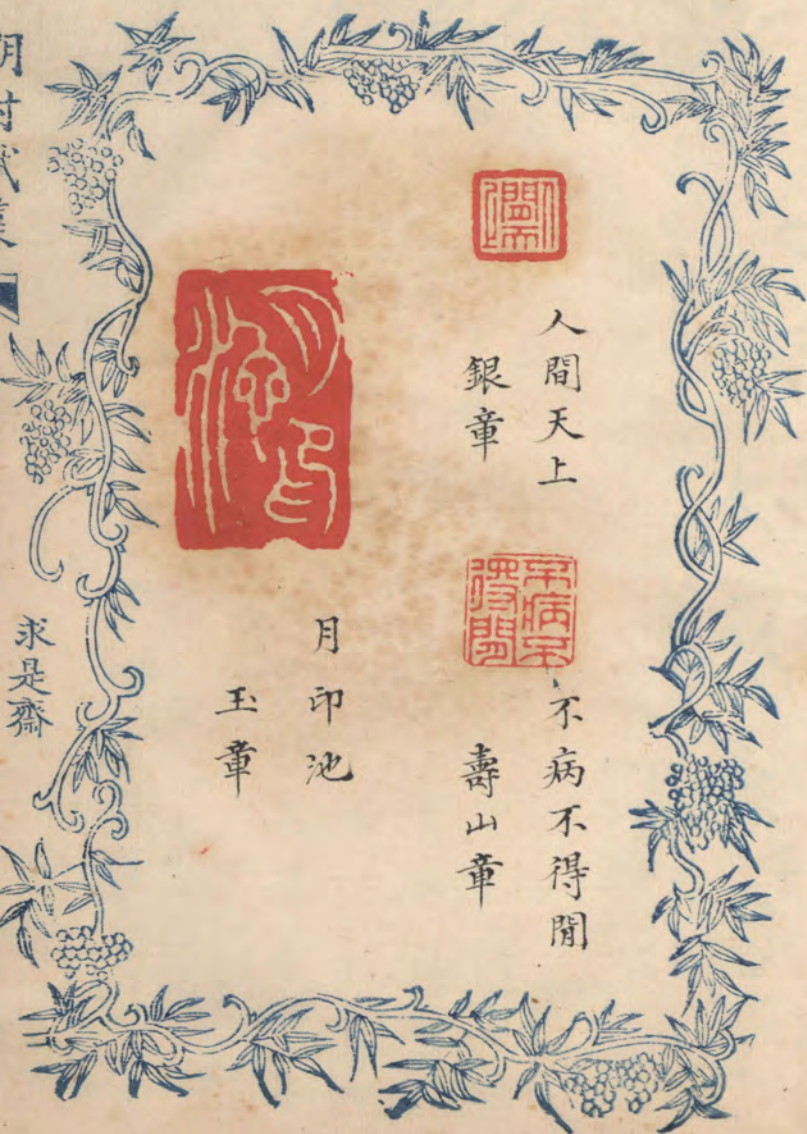 人間天上
銀章
不病不得閒
壽山章
月印池
玉章
求是齋